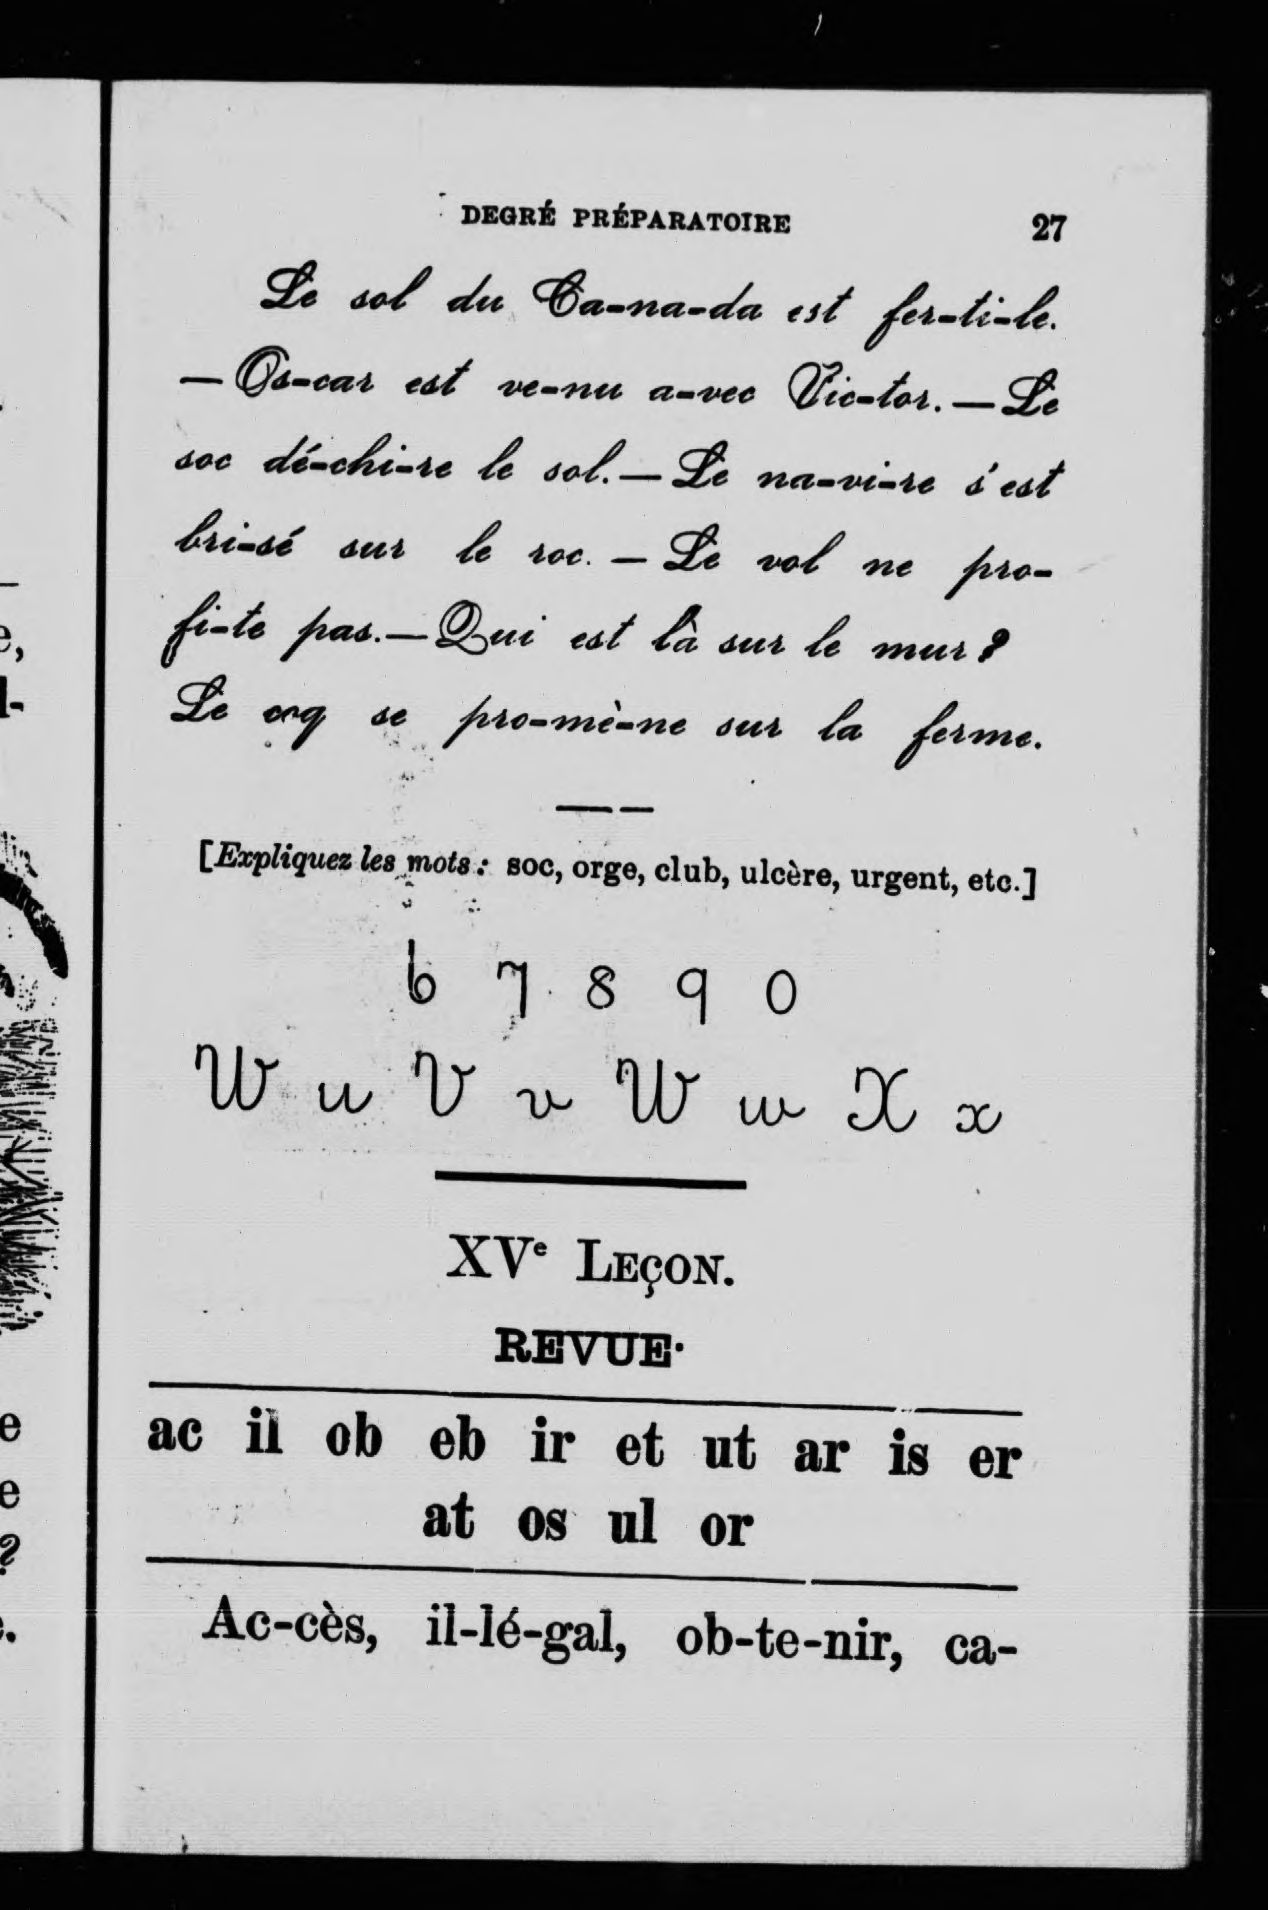 DEGRÉ PRÉPARATOIRE 27
Le sol du Ca-na-da est fer-ti-le.
— Os-car est ve-nu a-vec Vic-tor. — Le
soc dé-chi-re le sol. — Le na-vi-re s'est
bri-sé sur le roc. — Le vol ne pro-
fi-te pas. — Qui est là sur le mur ?
Le coq se pro-mè-ne sur la ferme.
[Expliquez les mots : soc, orge, club, ulcère, urgent, etc.]
6 7 8 9 0
W u V v W w X x
XVe LEÇON.
REVUE.
ac il ob eb ir et ut ar is er
at os ul or
Ac-cès, il-lé-gal, ob-te-nir, ca-